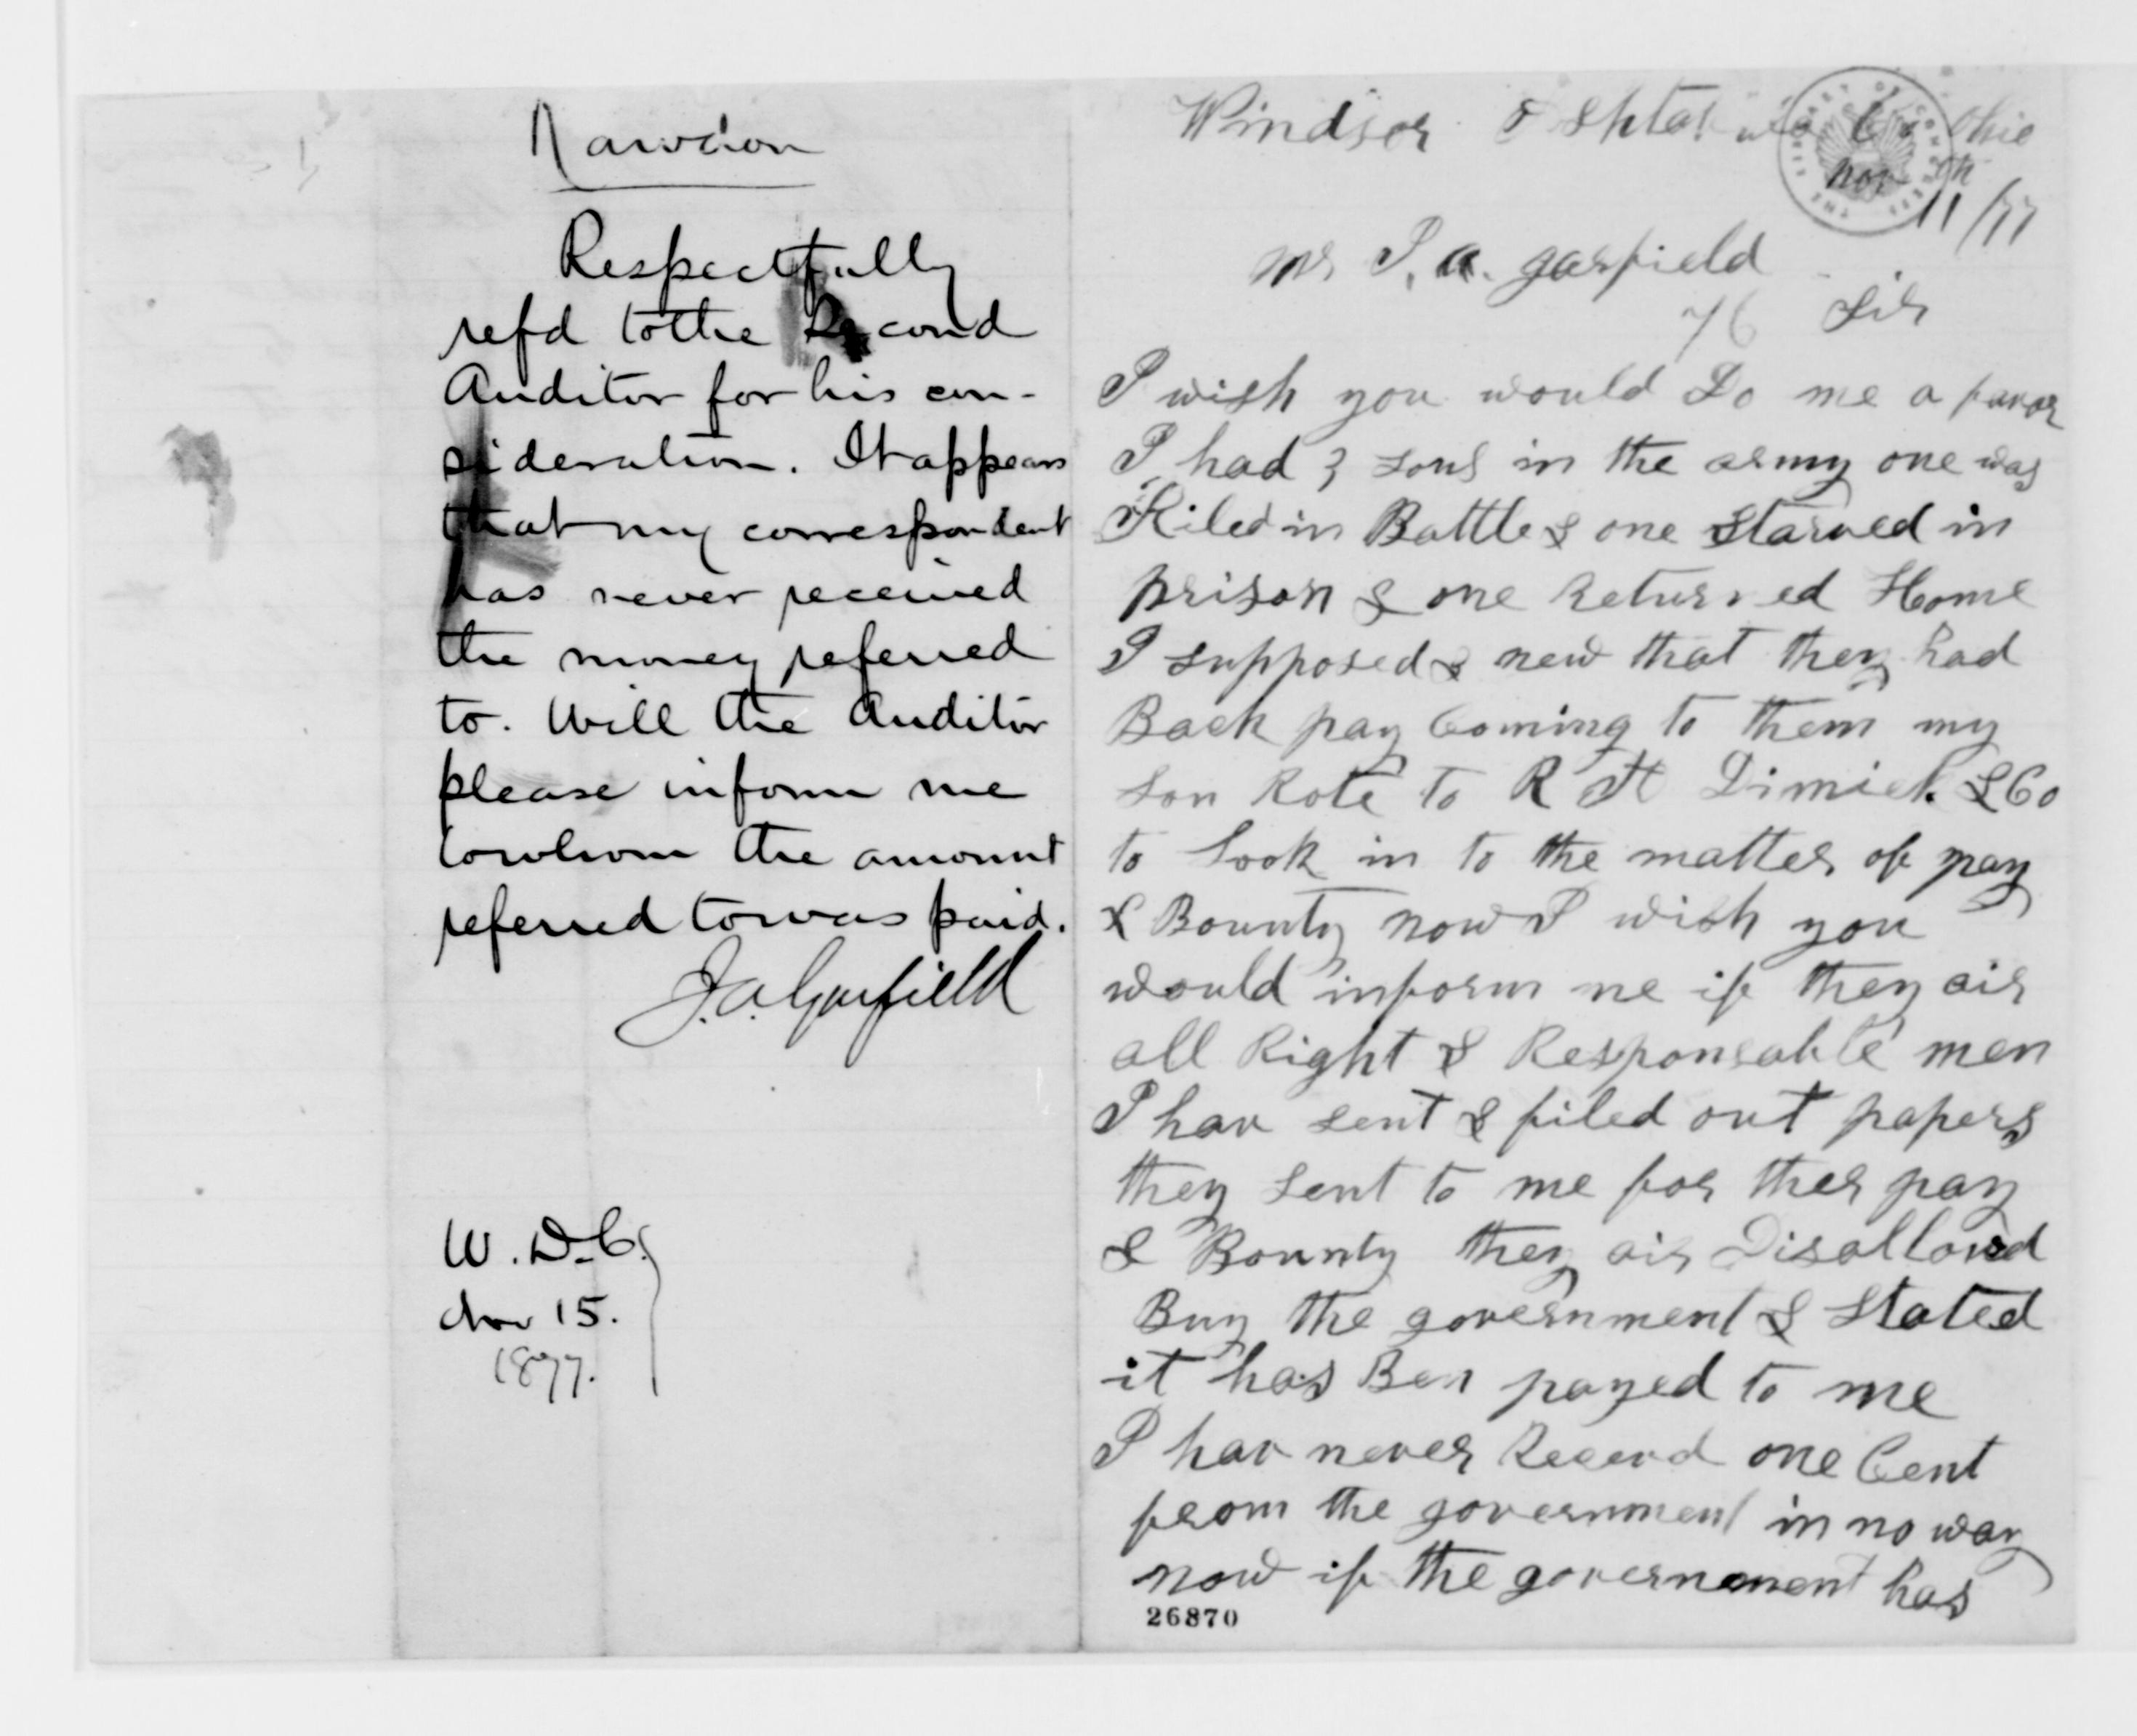 Rawdon
Respectfully
ref'd to the Second
Auditor for his con-
sideration. It appears
that my correspondent
has never received
the money referred
to. Will the Auditor
please inform me
to whom the amount
referred to was paid.
J. A. Garfield
W. D. C.
Nov 15.
1877.
Windsor Co Ohio
Nov th
11/77
Mr J. A. garfield
76 Sir
I wish you would Do me a favor
I had 3 sons in the army one was
Kiled in Battle & one Starved in
prison & one Returned Home
I supposed & new that they had
Back pay Coming to them my
son Rote to R H Dimick & Co
to Look in to the matter of pay
& Bounty now I wish you
would inform me if they air
all Right & Responsable men
I hav sent & filed out papers
they sent to me for ther pay
& Bounty they air Disallowd
Buy the government & Stated
it has Ben payed to me
I hav never Recevd one Cent
from the government in no way
now if the government has
26870